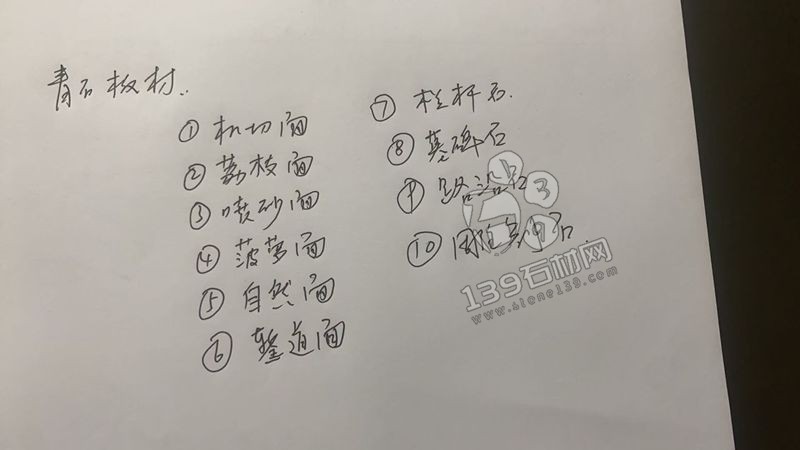 青石板材..
① 机切面
② 荔枝面
③ 喷砂面
④ 菠萝面
⑤ 自然面
⑥ 錾道面
⑦ 栏杆石.
⑧ 基础石
⑨ 路沿石
⑩ 石
139石材网
www.stone139.com